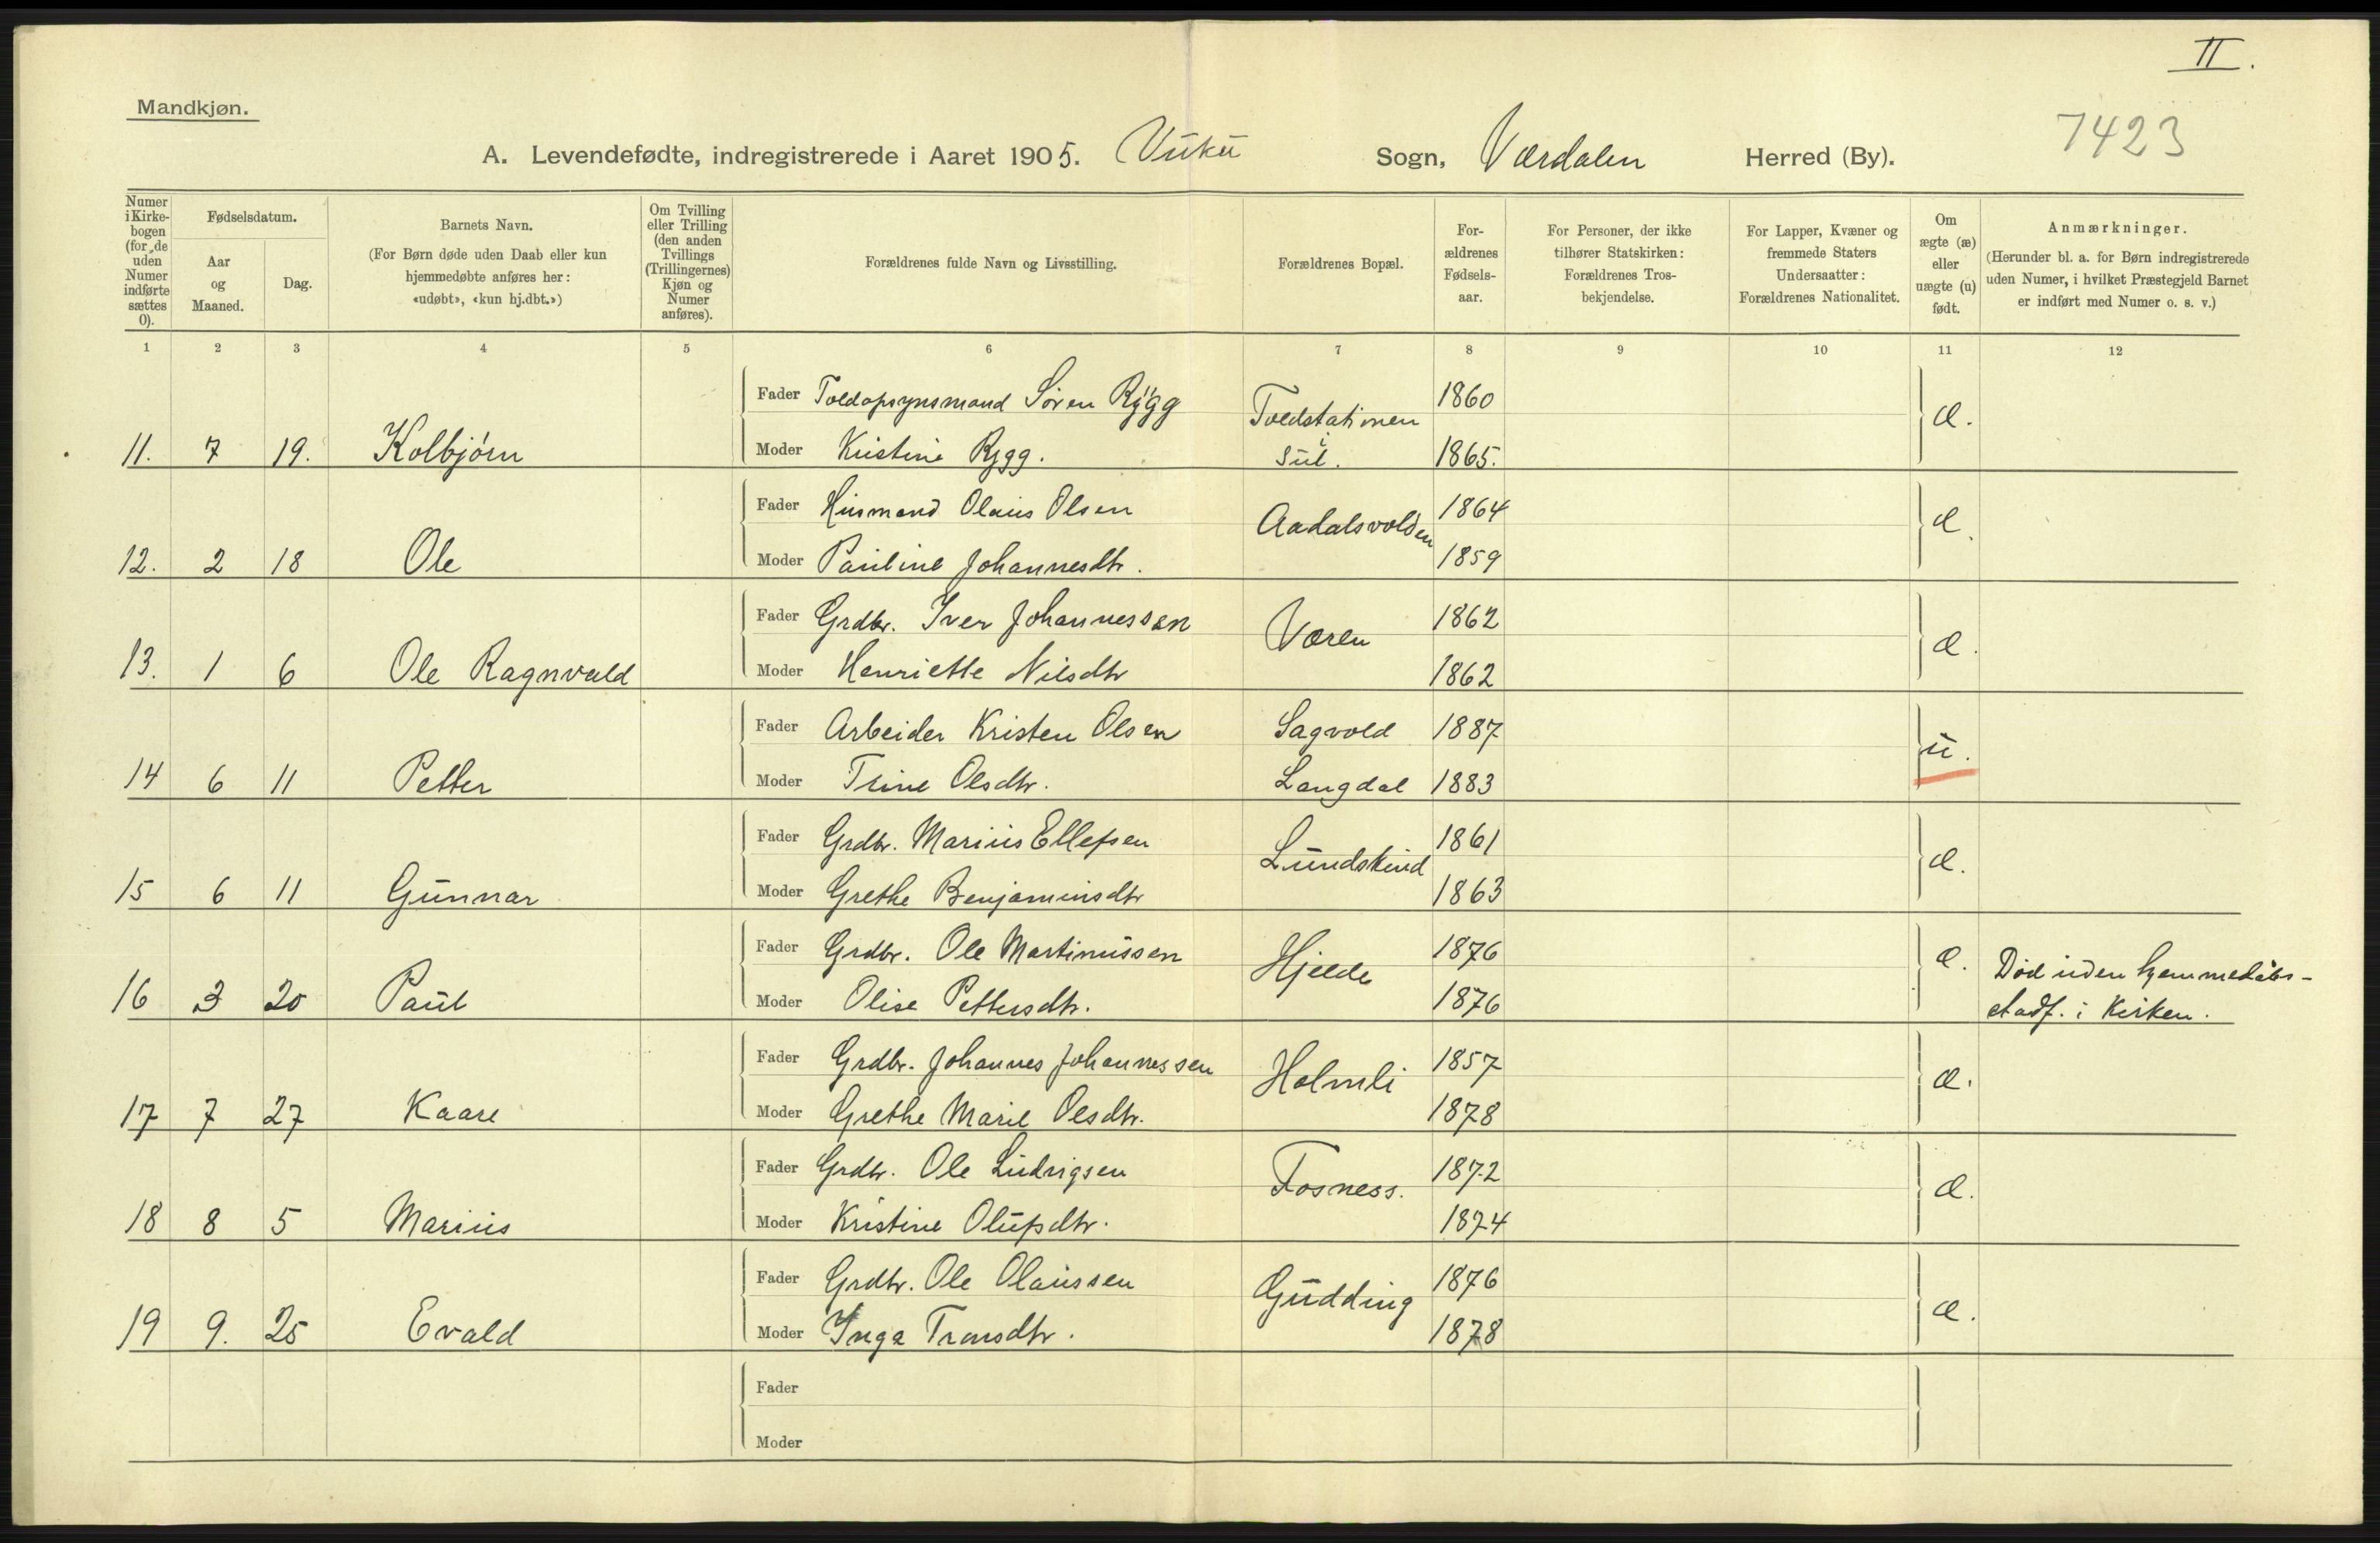 II.
Mandkjøn.
7423
A. Levendefødte, indregistrerede i Aaret 1905. Vuku Sogn, Værdalen Herred (By).
Numer i Kirkebogen (for de uden Numer indførte sættes 0).
Fødselsdatum.
Aar og Maaned.
Dag.
Barnets Navn.
(For Børn døde uden Daab eller kun hjemmedøbte anføres her: «udøbt», «kun hj.dbt.»)
Om Tvilling eller Trilling (den anden Tvillings (Trillingernes) Kjøn og Numer anføres).
Forældrenes fulde Navn og Livsstilling.
Forældrenes Bopæl.
Forældrenes Fødselsaar.
For Personer, der ikke tilhører Statskirken: Forældrenes Trosbekjendelse.
For Lapper, Kvæner og fremmede Staters Undersaatter: Forældrenes Nationalitet.
Om ægte (æ) eller uægte (u) født.
Anmærkninger.
(Herunder bl. a. for Børn indregistrerede uden Numer, i hvilket Præstegjeld Barnet er indført med Numer o. s. v.)
1 2 3 4 5 6 7 8 9 10 11 12
Fader Toldopsynsmand Søren Rygg Toldstationen 1860 æ.
11. 7 19. Kolbjørn Moder Kristine Rygg. i Sul. 1865.
Fader Husmand Olaus Olsen Aadalsvolden 1864 æ.
12. 2 18 Ole Moder Pauline Johannesdtr. 1859
Fader Grdbr. Iver Johannessen Væren 1862 æ.
13. 1 6 Ole Ragnvald Moder Henriette Nilsdtr 1862
Fader Arbeider Kristen Olsen Sagvold 1887 u.
14 6 11 Petter Moder Trine Olsdtr. Langdal 1883
Fader Grdbr. Marius Ellefsen Lundskind 1861 æ.
15 6 11 Gunnar Moder Grethe Benjaminsdtr 1863
Fader Grdbr. Ole Martinussen Hjelde 1876 æ. Død uden hjemmedåbs-
16 3 20 Paul Moder Olise Pettersdtr. 1876 stadf. i Kirken.
Fader Grdbr. Johannes Johannessen Holmli 1857 æ.
17 7 27 Kaare Moder Grethe Marie Olsdtr. 1878
Fader Grdbr. Ole Ludvigsen Fosness. 1872 æ.
18 8 5 Marius Moder Kristine Olufsdtr. 1874
Fader Grdbr. Ole Olaussen Gudding 1876 æ.
19 9. 25 Evald Moder Inga Tronsdtr. 1878
Fader
Moder